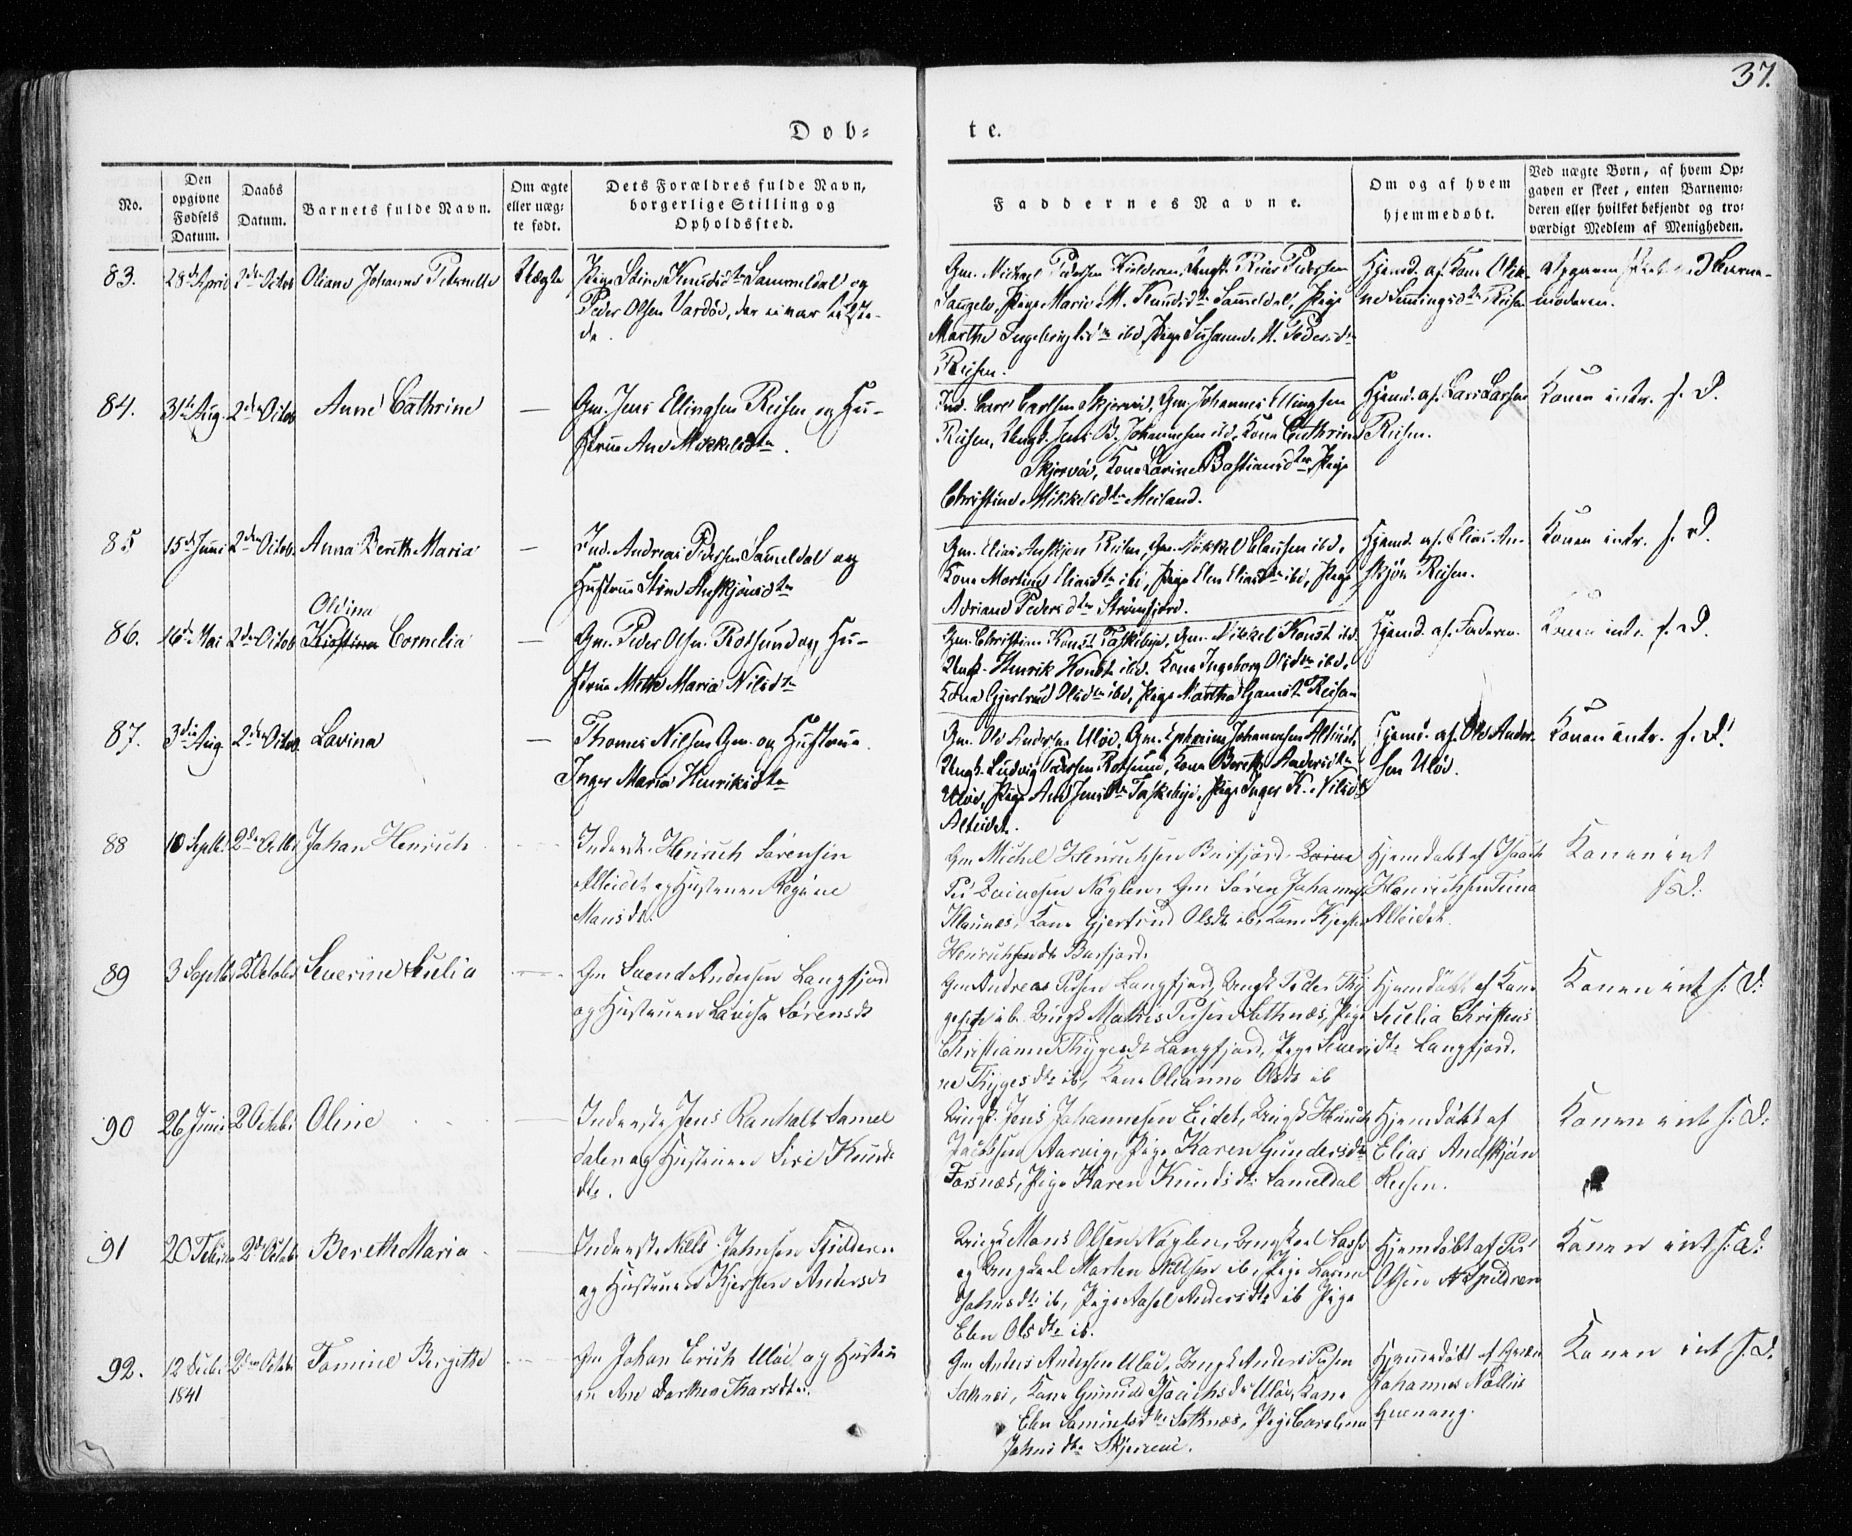 37.
Døb=
te.
No.
Den
opgivne
Fødsels
Datum.
Daabs
Datum.
Barnets fulde Navn.
Om ægte
eller uæg-
te født.
Dets Forældres fulde Navn,
borgerlige Stilling og
Opholdssted.
Faddernes Navne.
Om og af hvem
hjemmedøbt.
Ved uægte Børn, af hvem Op-
gaven er skeet, enten Barnemo-
deren eller hvilket bekjendt og tro-
værdigt Medlem af Menigheden.
83.
28de April
2den Octob
Oliane Johanna Petrnelle
Uægte
Pige Knudsdtr Sammeldal og
Peder Olsen Vardöe, der
Gm. Michael Pedersen
Pige Marie M. Knudsdtr Sammeldal, Pige
Marthe Ingebrigtsdtr ibd, Pige Susanne M. Pedersdtr
Reisen.
Hjemd. af Kone
Reisen
moderen.
84.
31te Aug.
2den Octob
Anne Cathrine
—
Gm. Jens Ellingsen Reisen og Hu-
strue Ane Mikkelsdtr.
Ind. Carl Carlsen Skjervöe, Gm. Johannes Ellingsen
Reisen, Ungk. Jens B. Johannesen ibd, Kone Cathrine
Skjervöe, Kone Lavine Bastiansdtr, Pige
Christine Mikkelsdtr Meiland.
Hjemd. af Lars Larsen
Reisen.
Konen intr. s. D.
85
15de Juni
2den Octob.
Anna Berith Maria
—
Ind. Andreas Pedersen Sameldal og
Hustrue Stine Anskjönsdtr
Gm. Elias Anskjön Reisen, Gm. Mikkel Clausen ibd.
Kone Martine Eliasdtr ibd, Pige Elen Eliasdtr ibd, Pige
Adriane Pedersdtr Strömfjord.
Hjemd. af Elias An-
skjön Reisen.
Konen intr. s. D.
86.
16de Mai
2den Octob
Oldina
Kirstina Cornelia
—
Gm. Peder Olsen Rotsund og Hu-
strue Mette Maria Nilsdtr
Gm. Christian Konst Taskebye, Gm. Mikkel Konst ibd.
Ungk. Henrik Konst ibd. Kone Ingeborg Olsdtr ibd.
Kone Gjertrud Olsdtr ibd, Pige Martha Reisen
Hjemd. af Faderen.
Konen intr. s. D.
87.
3die Aug
2den Octob.
Lavina
—
Thomas Nilsen Gm. og Hustrue
Inger Maria Henriksdtr
Gm. Ole Andersen Ulöe, Gm. Ephraim Johannesen Alteidet
Ungk. Ludvig Pedersen Rotsund, Kone Berethe Andersdtr
Ulöe, Pige Ane Jensdtr Taskebye, Pige Inger K. Nilsdtr
Alteidet.
Hjemd. af Ole Ander-
sen Ulöe.
Konen intr. s. D.
88
10 Septbr
2den Octbr
Johan Henrich
Inderst Henrich Sörensen
Alteidet og Hustruen Regine
Monsdt.
Gm Michel Henrichsen Burfjord,
Sören Johannes
Kone Gjertrud Olsdt ib, Kone
Henrichsendt Burfjord.
Hjemdöbt af Isaach
Henrichsen
Alteidet.
Konen int
s. D:
89
3 Septbr
2d Octobr
Severine Julia
Gm Svend Andersen Langfjord
og Hustruen Lovisa Sörensdt
Gm Andreas Pedersen Langfjord, Ungk Peder Thy
gesen ib. Ungk Mathis Pedersen Sethnæs, Pige
Christianne Thygesdt Langfjord, Pige Severi
ne Thygesdtr ib, Kone Olianna Olsdt ib
Hjemdöbt af Kone
Sicilia Christens
dtr Langfjord.
Konen int s. D:
90
26 Juni
2 Octobr
Oline
Inderste Jens Ranhalt Samel
dalen og Hustruen Siri Knuds
dtr.
Ungk Jens Johannesen Eidet, Ungk Henrich
Jacobsen Aarvig, Pige Karen Gundersdtr
Forsnæs, Pige Karen Knudsdtr Sameldal
Hjemdöbt af
Elias Andskjön
Reisen.
Konen int s. D:
91
20 Febr
2d Octob
Bereth Maria
Inderste Niels Johnsen Spildern
og Hustruen Kjersten Andersdt
Ungk Mons Olsen Noglen, Ungkarl Lasse
og Ungkarl Morten Nilsen ib, Pige Lorene
Johnsdtr ib, Pige Andersdtr ib Pige
Elen Olsdtr ib.
Hjemdöbt af
Olsen Spildren
Konen int s. D:
92.
12 Decbr
1841
2den Octobr
Tomine Bergithe
Gm Johan Erich Ulöe og Hustru
en Ane Dorthea Tharsdtr.
Gm Anders Andersen Ulöe, Ungk Anders Pedersen
Kone Gunild Isachsdtr Ulöe, Kone
Elen Samuelsdtr Pige Carolina
Johnsdtr
Hjemmedöbt af
Johannes
Qvenang.
Konen int s. D.